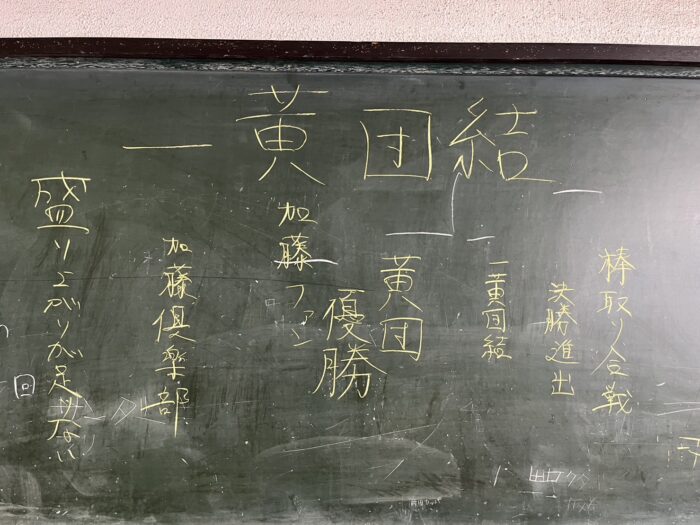 一黄団結
棒取り合戦
決勝進出
一黄団結
黄団
優勝
加藤ファン
加藤倶楽部
盛り上がりが足りない
回